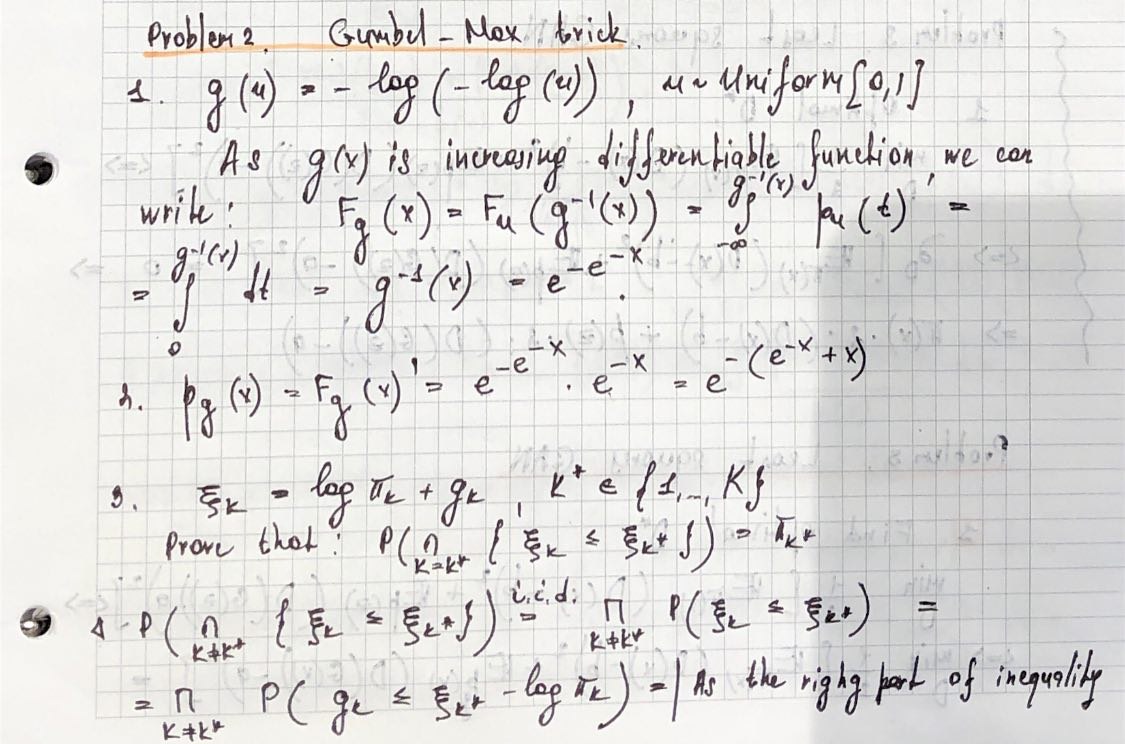 Problem 2. Gumbel - Max trick.
1. g(u) = - log(- log(u)), u ~ Uniform[0,1]
As g(x) is increasing differentiable function, we can
write: F_g(x) = F_u(g^{-1}(x)) = ∫_{-∞}^{g^{-1}(x)} p_u(t) =
= ∫_0^{g^{-1}(x)} dt = g^{-1}(x) = e^{-e^{-x}}.
2. p_g(x) = F_g(x)' = e^{-e^{-x}} · e^{-x} = e^{-(e^{-x}+x)}
3. ξ_k = log π_k + g_k, k* ∈ {1,..,K}
Prove that: P(∩_{k=k*} {ξ_k ≤ ξ_{k*}}) = π_{k*}
1. P(∩_{k≠k*} {ξ_k ≤ ξ_{k*}}) =^{i.i.d.} Π_{k≠k*} P(ξ_k ≤ ξ_{k*}) =
= Π_{k≠k*} P(g_k ≤ ξ_{k*} - log π_k) = | As the righg part of inequality